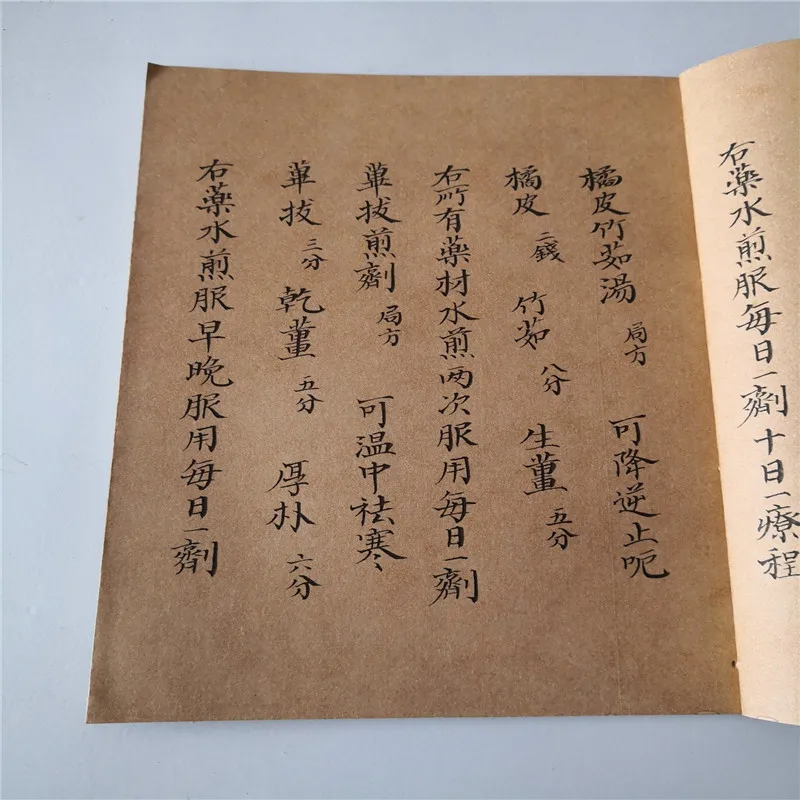 右薬水煎服每日一劑十日一療程
橘皮竹茹湯 局方 可降逆止呃
橘皮 二錢 竹茹 八分 生薑 五分
右所有薬材水煎两次服用每日一劑
蓽拔煎劑 局方 可温中祛寒
蓽拔 三分 乾薑 五分 厚朴 六分
右薬水煎服早晚服用每日一劑